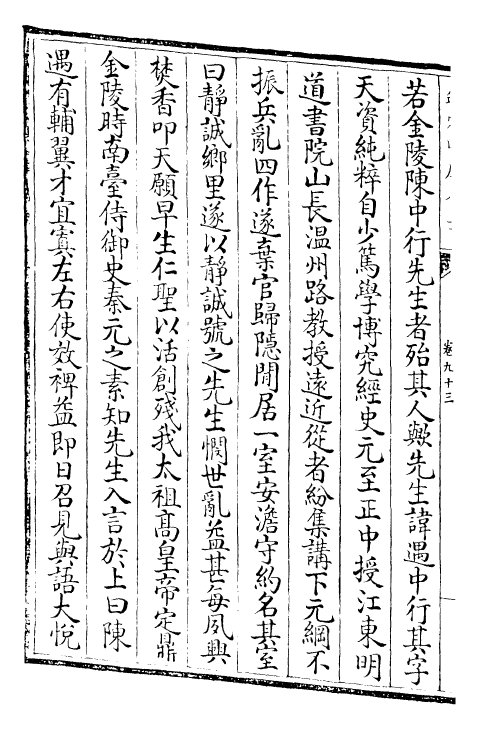 卷九十三
若金陵陳中行先生者殆其人歟先生諱遇中行其字
天資純粹自少篤學博究經史元至正中授江東明
道書院山長温州路教授遠近從者紛集講下元綱不
振兵亂四作遂棄官歸隱閒居一室安澹守約名其室
曰靜誠鄉里遂以靜誠號之先生憫世亂益甚每夙興
焚香叩天願早生仁聖以活創殘我太祖髙皇帝定鼎
金陵時南臺侍御史秦元之素知先生入言於上曰陳
遇有輔翼才宜寘左右使效裨益即日召見與語大悦